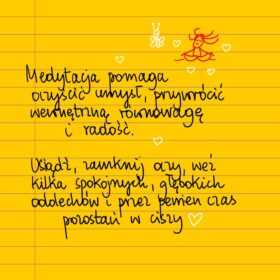 Medytacja pomaga
oczyścić umysł, przywrócić
wewnętrzną równowagę
i radość.
Usiądź, zamknij oczy, weź
kilka spokojnych, głębokich
oddechów i przez pewien czas
pozostań w ciszy